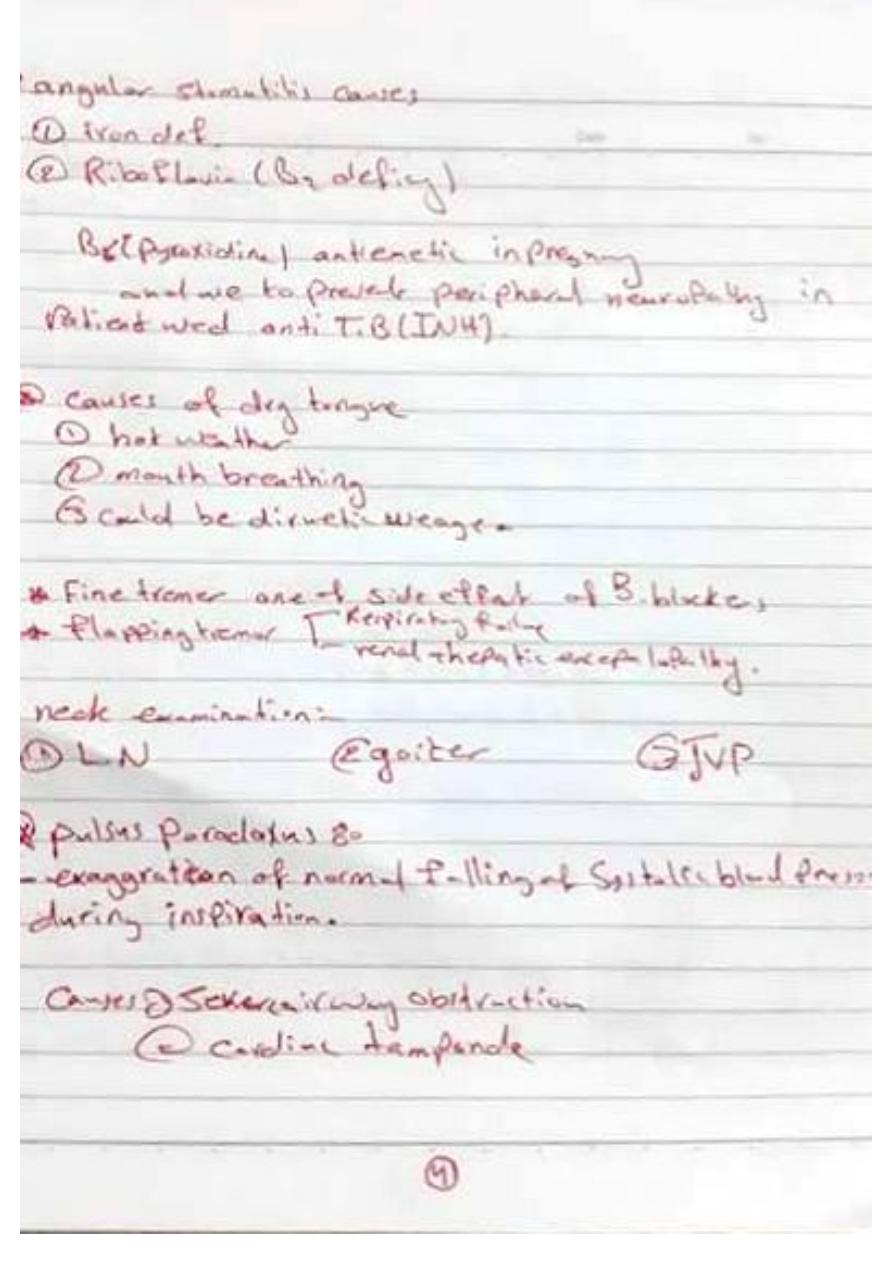 angular stomatitis causes
① iron def.
② Riboflavin (B2 deficy)
B6 (pyroxidine) antiemetic in pregnany
and use to prevent peripheral neuropathy in
Patient used anti T.B (INH).
causes of dry tongue
① hot weather
② mouth breathing
③ could be diruetic useage.
* Fine tremer one of side effect of B. blockers
* flapping tremor Respiratory failure
renal + hepatic encephalopathy.
neck examination:-
① LN ② goiter ③ JVP
pulsus Paradoxus :-
- exaggration of normal falling of Systolic blood Press
during inspiration.
Causes ① Sever airway obstruction
② cardiac tamponade
④